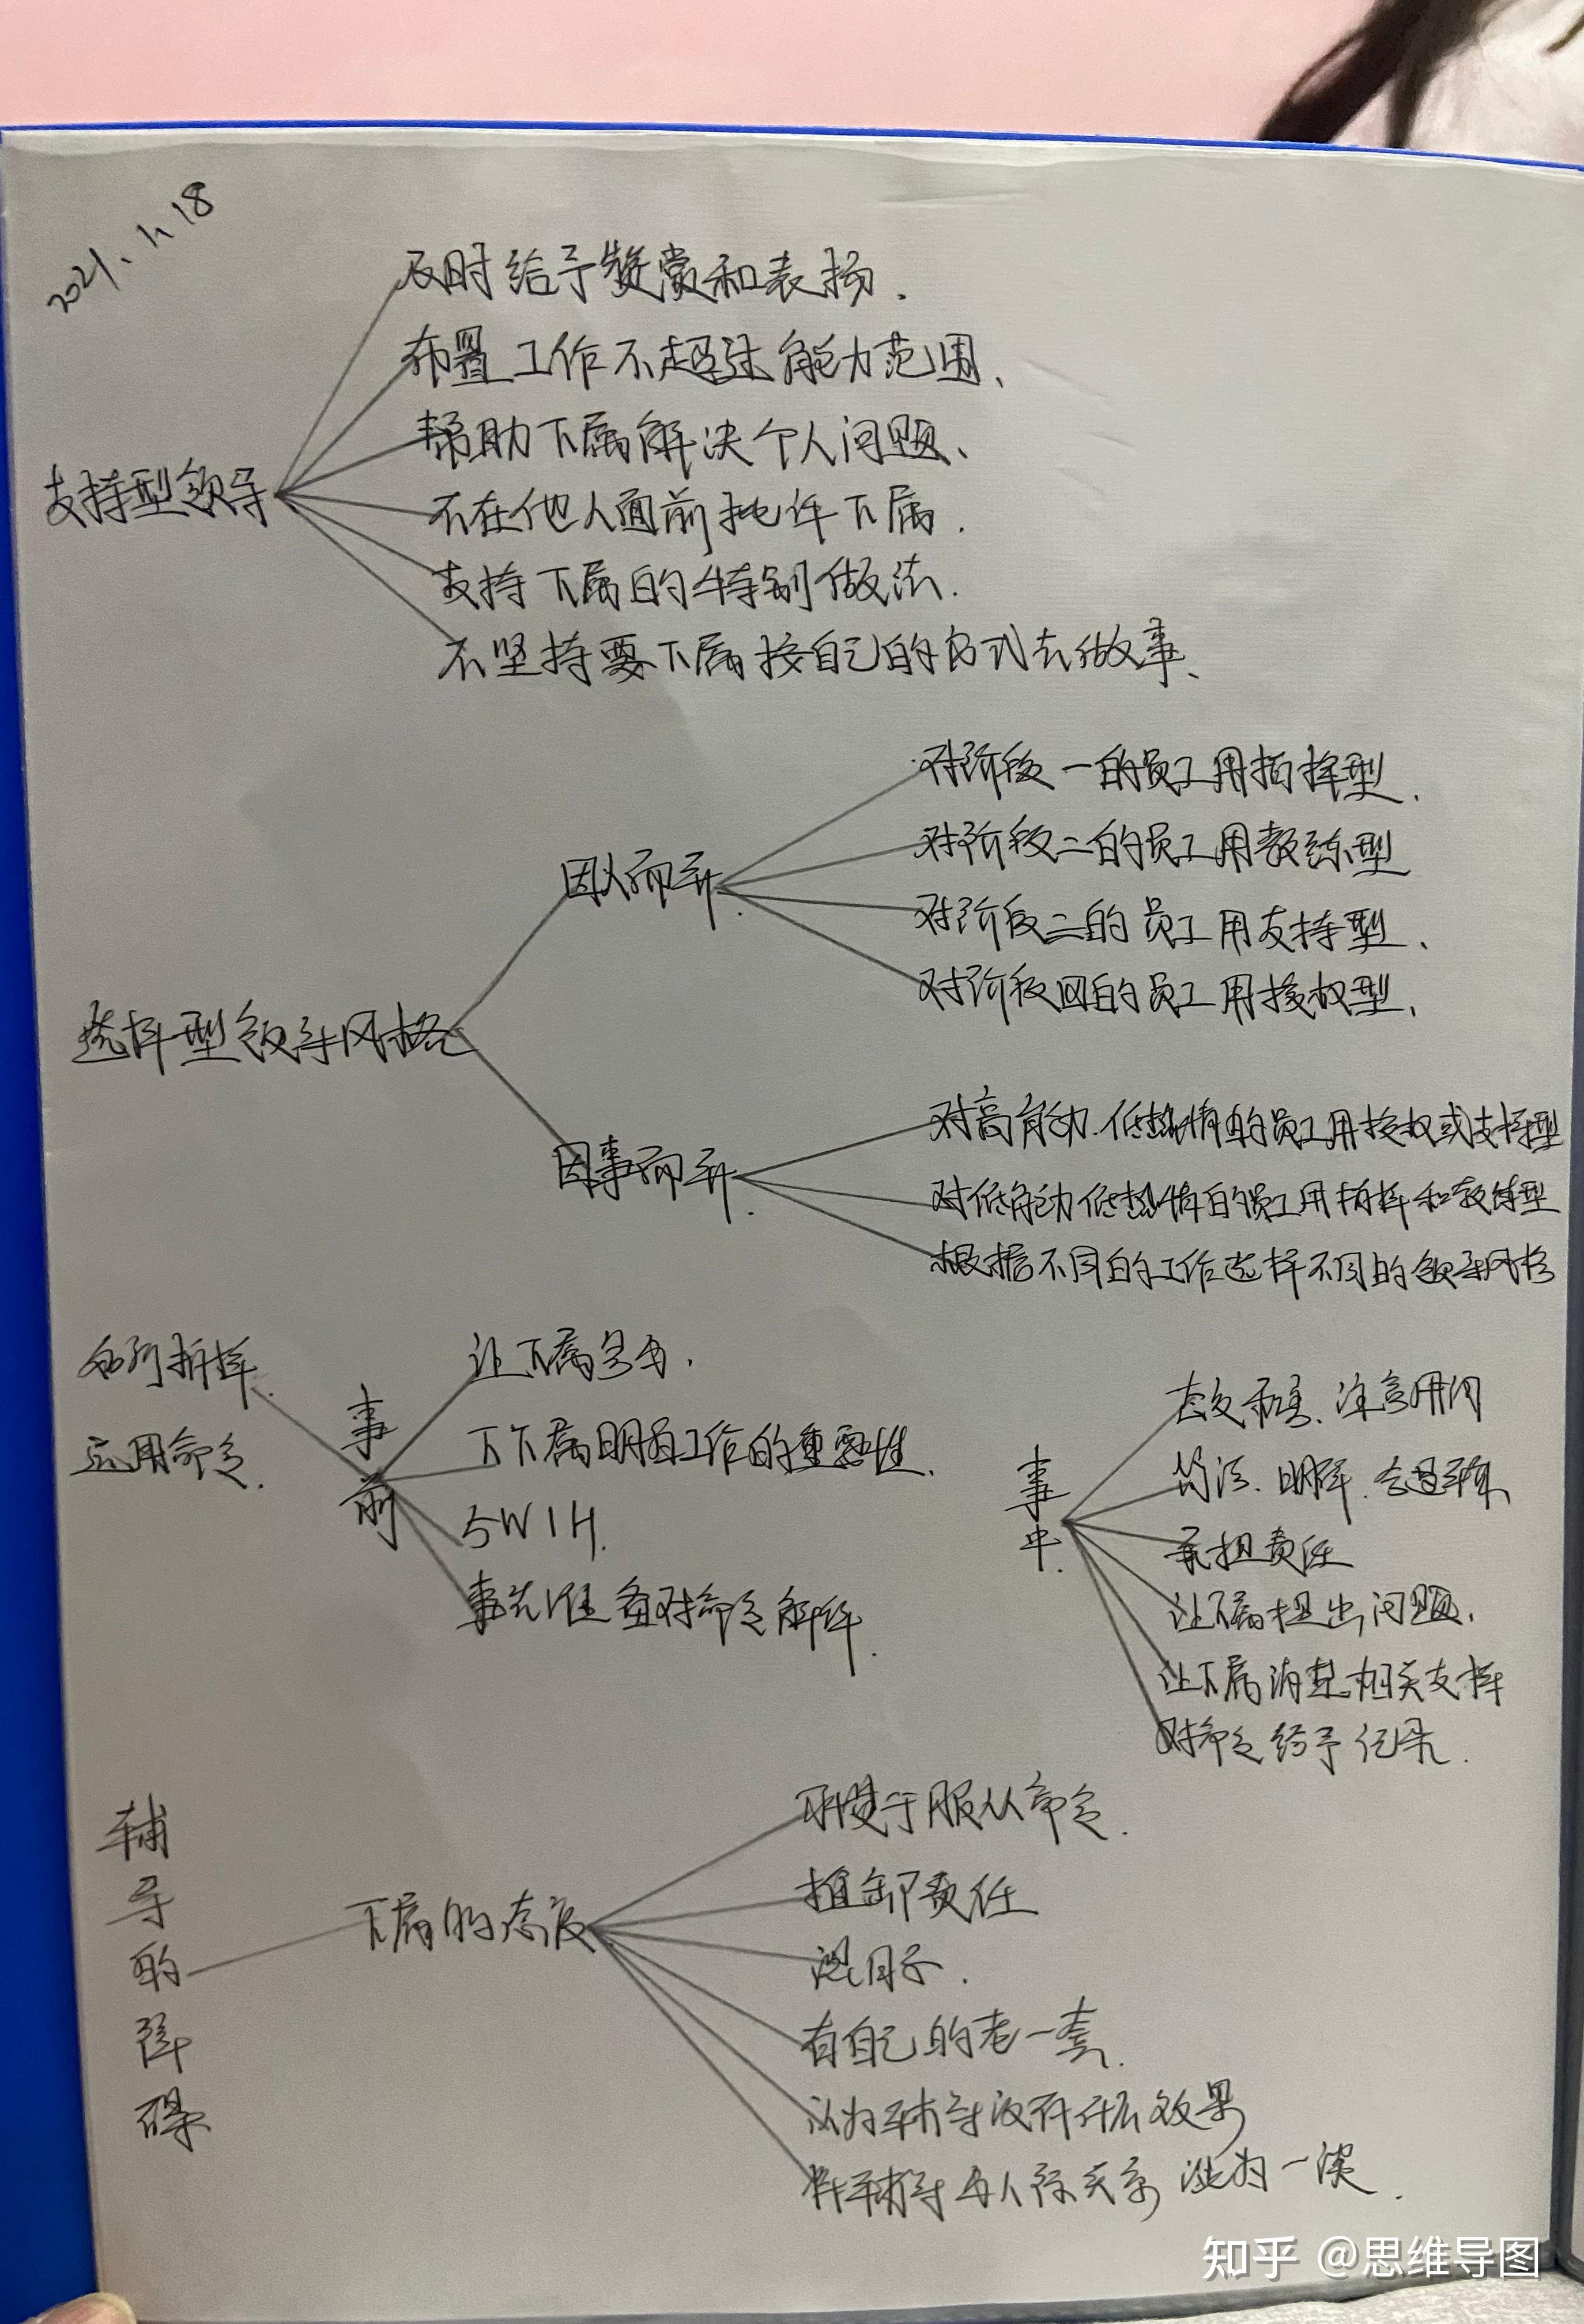 2021、11、18
及时给予赞赏和表扬.
布置工作不超过能力范围、
帮助下属解决个人问题、
支持型领导
不在他人面前批评下属.
支持下属的特别做法.
不坚持要下属按自己的方式去做事、
对阶段一的员工用指挥型.
对阶段二的员工用教练型
因人而异.
对阶段三的员工用支持型、
对阶段四的员工用授权型.
选择型领导风格
对高能力.低热情的员工用授权或支持型
因事而异.
对低能力低热情的员工用指挥和教练型
根据不同的工作选择不同的领导风格
如何指挥.
运用命令.
事前
让下属参与.
下属明白工作的重要性.
5W1H.
事先准备对命令解释.
事中.
态度和善.注意用词
简洁.明确.
承担责任
让下属提出问题.
让下属清楚相关支持
对命令给予记录.
辅导的障碍
下属的态度
习惯于服从命令.
推卸责任
混日子.
有自己的老一套.
认为辅导没有什么效果
将辅导与人际关系混为一谈.
知乎 @思维导图